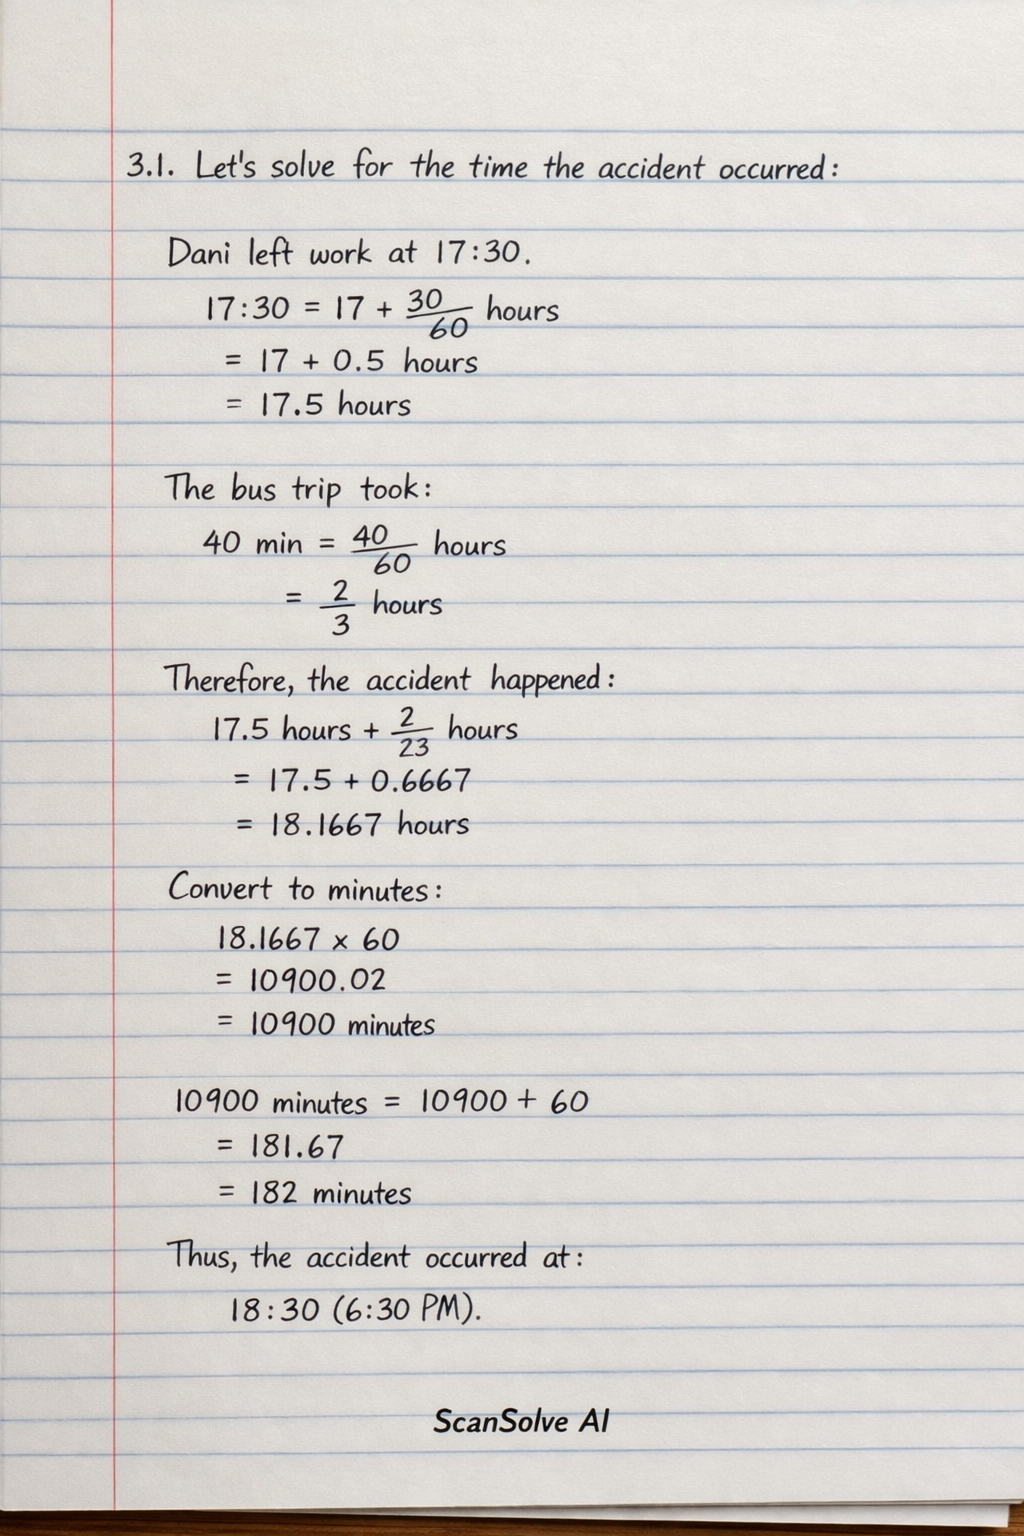 3.1. Let's solve for the time the accident occurred:
Dani left work at 17:30.
17:30 = 17 + 30/60 hours
= 17 + 0.5 hours
= 17.5 hours
The bus trip took:
40 min = 40/60 hours
= 2/3 hours
Therefore, the accident happened:
17.5 hours + 2/23 hours
= 17.5 + 0.6667
= 18.1667 hours
Convert to minutes:
18.1667 x 60
= 10900.02
= 10900 minutes
10900 minutes = 10900 + 60
= 181.67
= 182 minutes
Thus, the accident occurred at:
18:30 (6:30 PM).
ScanSolve AI